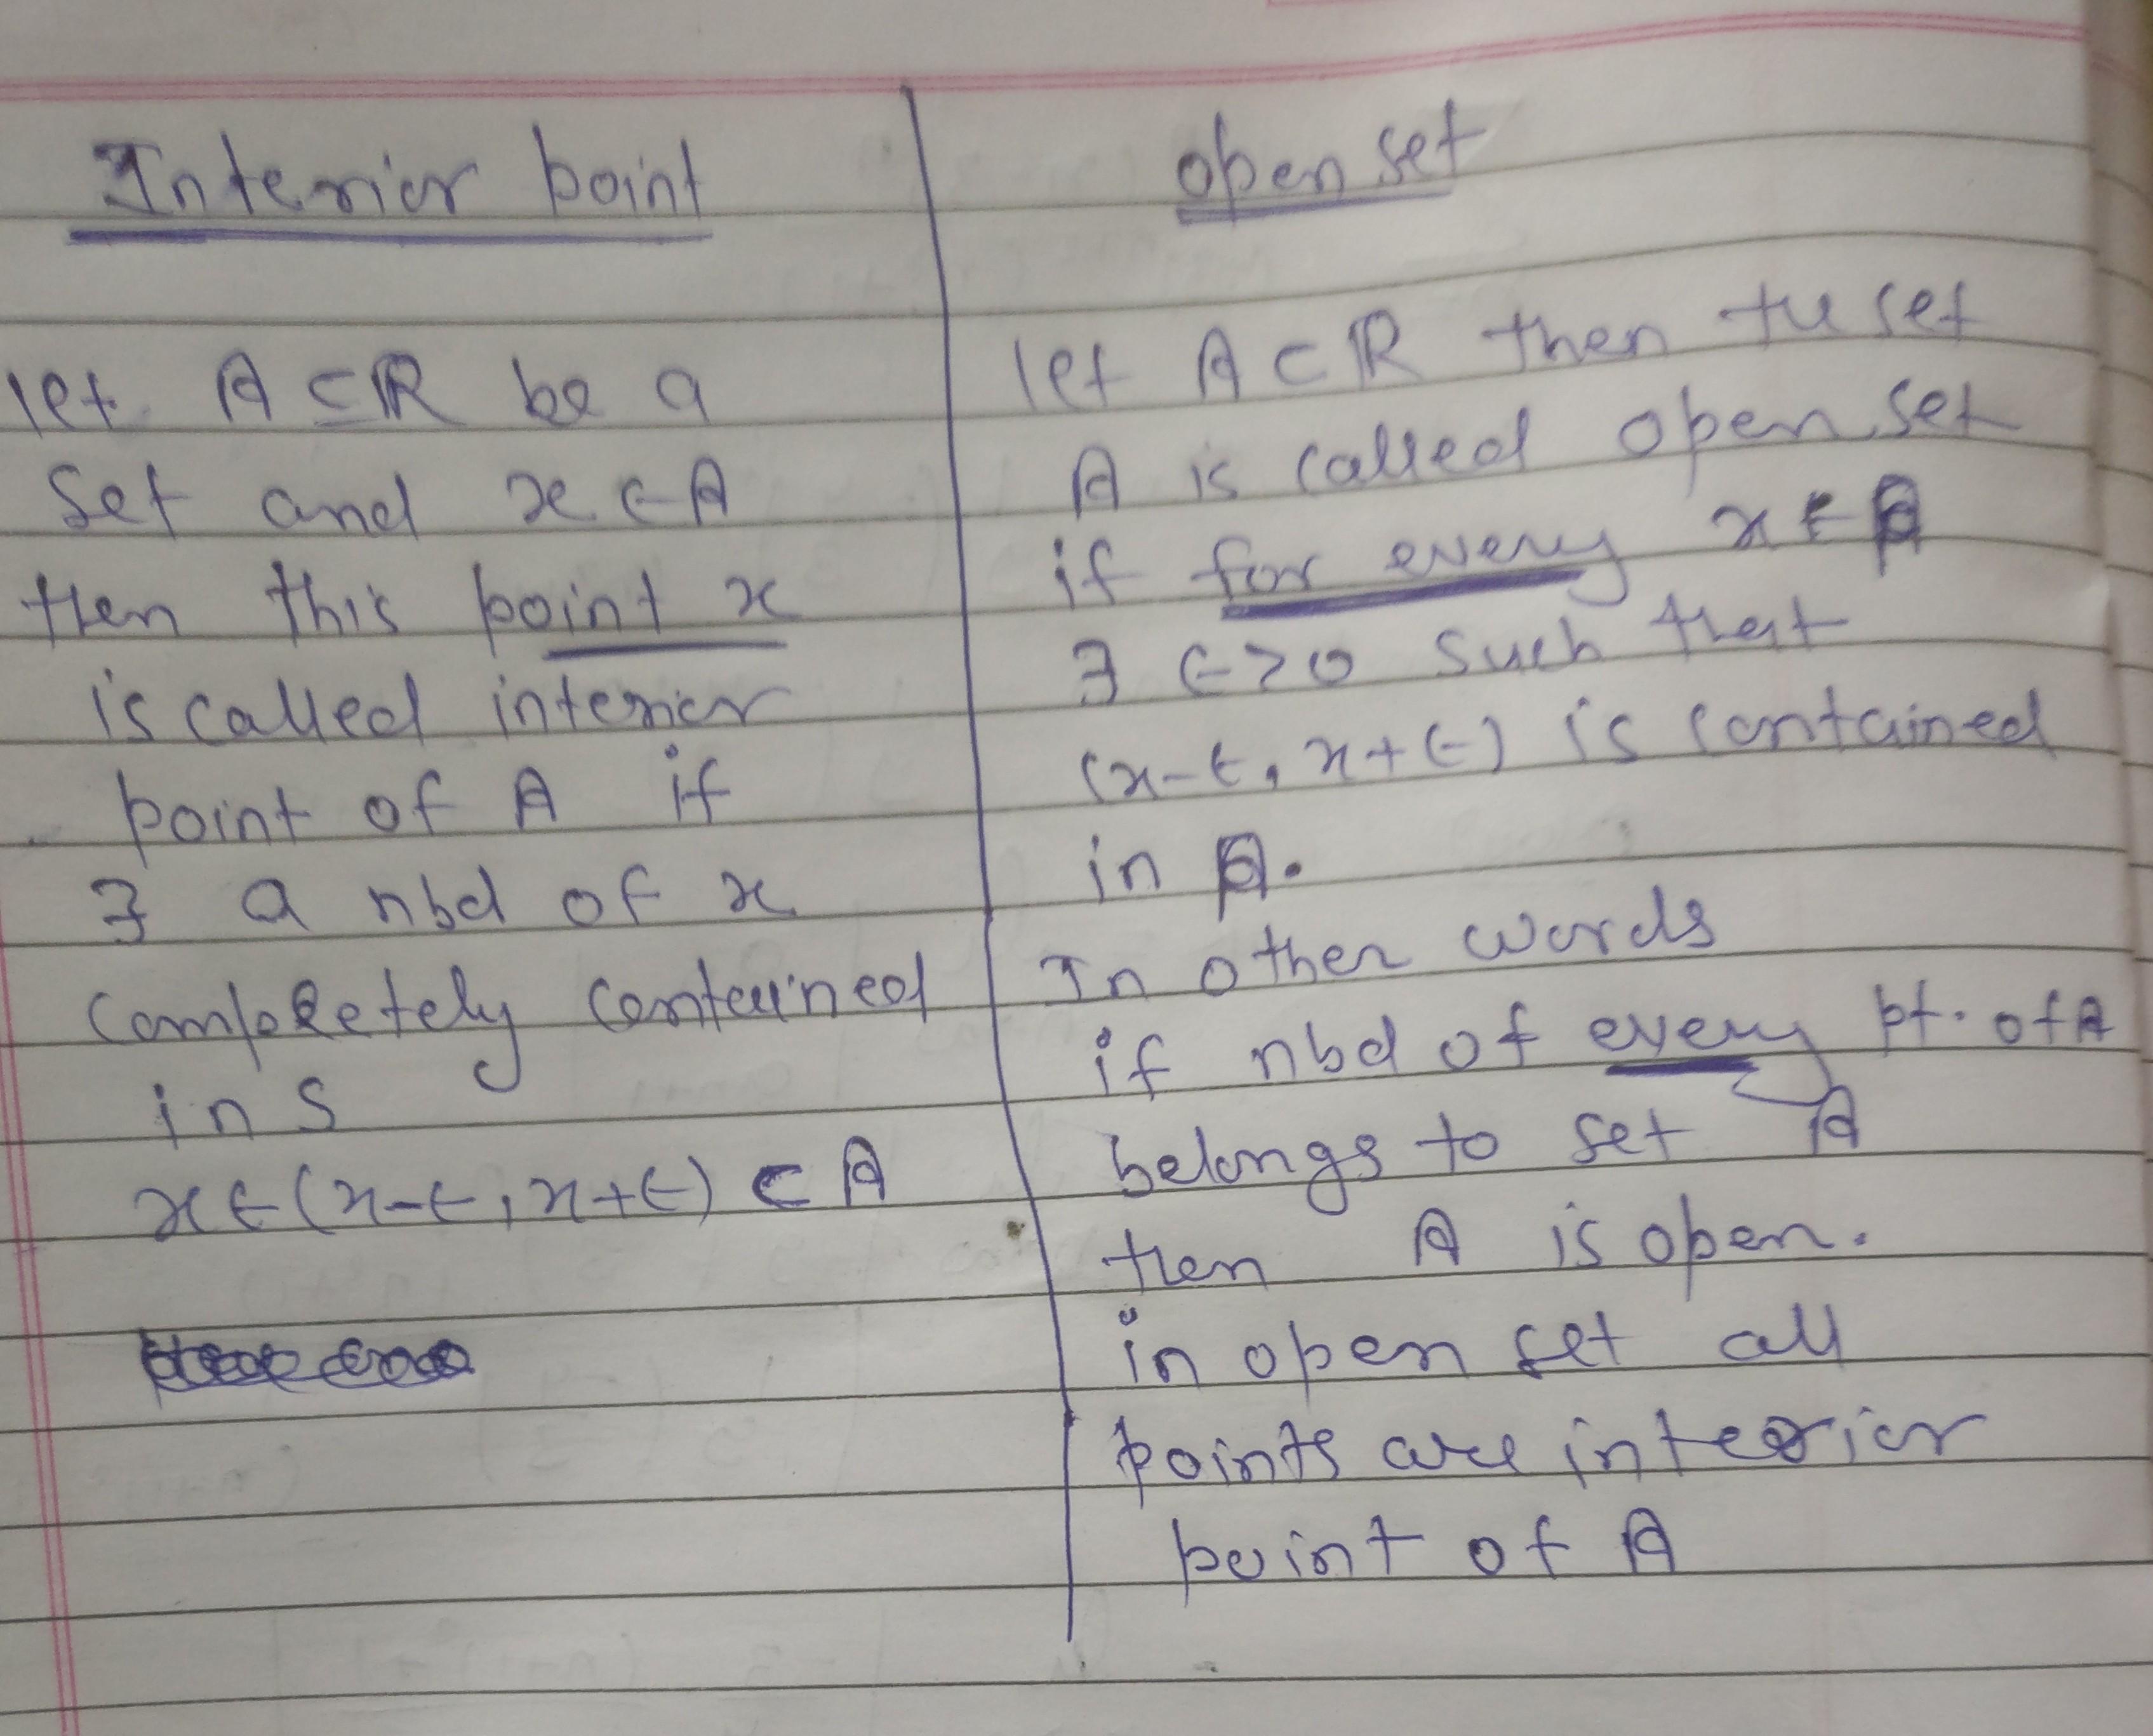 Interior point
let A ⊆ ℝ be a
set and x ∈ A
then this point x
is called interior
point of A if
∃ a nbd of x
completely contained
in S
x ∈ (x-ϵ, x+ϵ) ⊂ A
open set
let A ⊂ ℝ then the set
A is called open set
if for every x ∈ A
∃ ϵ>0 such that
(x-ϵ, x+ϵ) is contained
in A.
In other words
if nbd of every pt. of A
belongs to set A
then A is open.
in open set all
points are interior
point of A